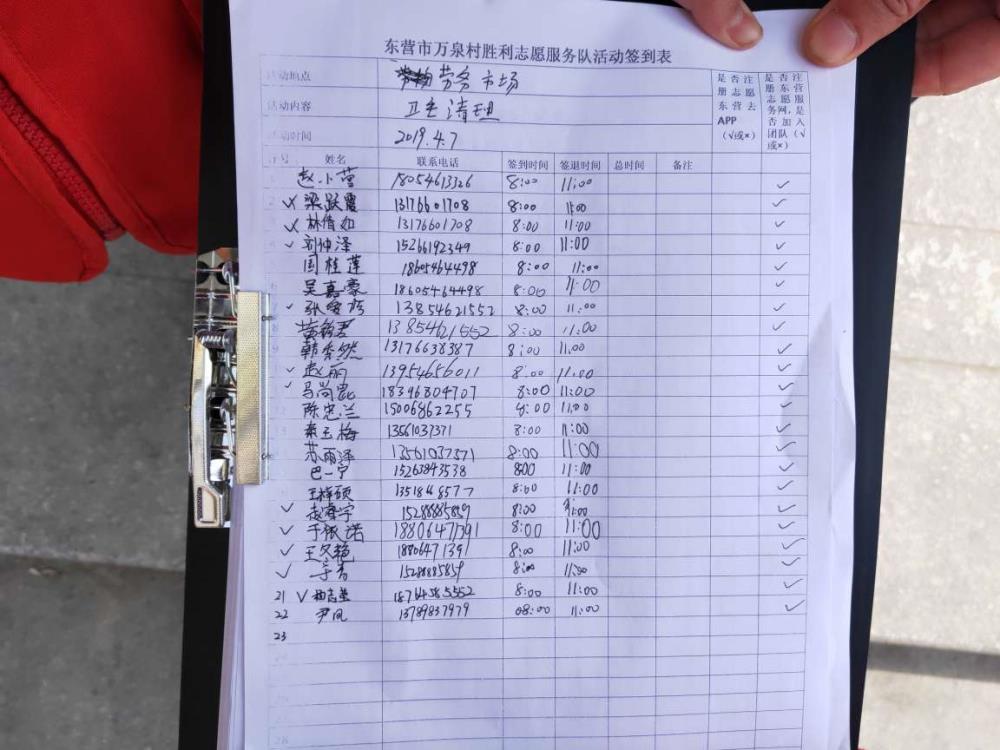 东营市万泉村胜利志愿服务队活动签到表
活动地点 劳务市场 是否注册志愿东营去APP（√或×） 是否注册东营志愿服务网,是否加入团队（√或×）
活动内容 卫生清理
活动时间 2019.4.7
序号 姓名 联系电话 签到时间 签退时间 总时间 备注
赵小营 18054613326 8:00 11:00 ✓
2 ✓ 梁跃霞 13176601708 8:00 11:00 ✓
✓ 林倩如 13176601708 8:00 11:00 ✓
✓ 刘仲泽 15266192349 8:00 11:00 ✓
国桂莲 18605464498 8:00 11:00 ✓
吴嘉豪 18605464498 8:00 11:00 ✓
✓ 张 13854621552 8:00 11:00 ✓
黄 13854621552 8:00 11:00 ✓
韩秀然 13176638387 8:00 11:00 ✓
✓ 赵丽 13954656011 8:00 11:00 ✓
✓ 马尚昆 18396804707 8:00 11:00 ✓
陈忠兰 15006862255 8:00 11:00 ✓
秦玉梅 13561037371 8:00 11:00 ✓
苏雨泽 13561037371 8:00 11:00 ✓
巴一宁 15263843538 8:00 11:00 ✓
王梓硕 1351846577 8:00 11:00 ✓
✓ 赵睿宇 15288885859 8:00 11:00 ✓
✓ 于依诺 18806471391 8:00 11:00 ✓
✓ 王冬艳 18806471391 8:00 11:00 ✓
✓ 李青 15288885859 8:00 11:00 ✓
21 ✓ 18764585552 8:00 11:00 ✓
22 尹凤 13789837979 08:00 11:00 ✓
23